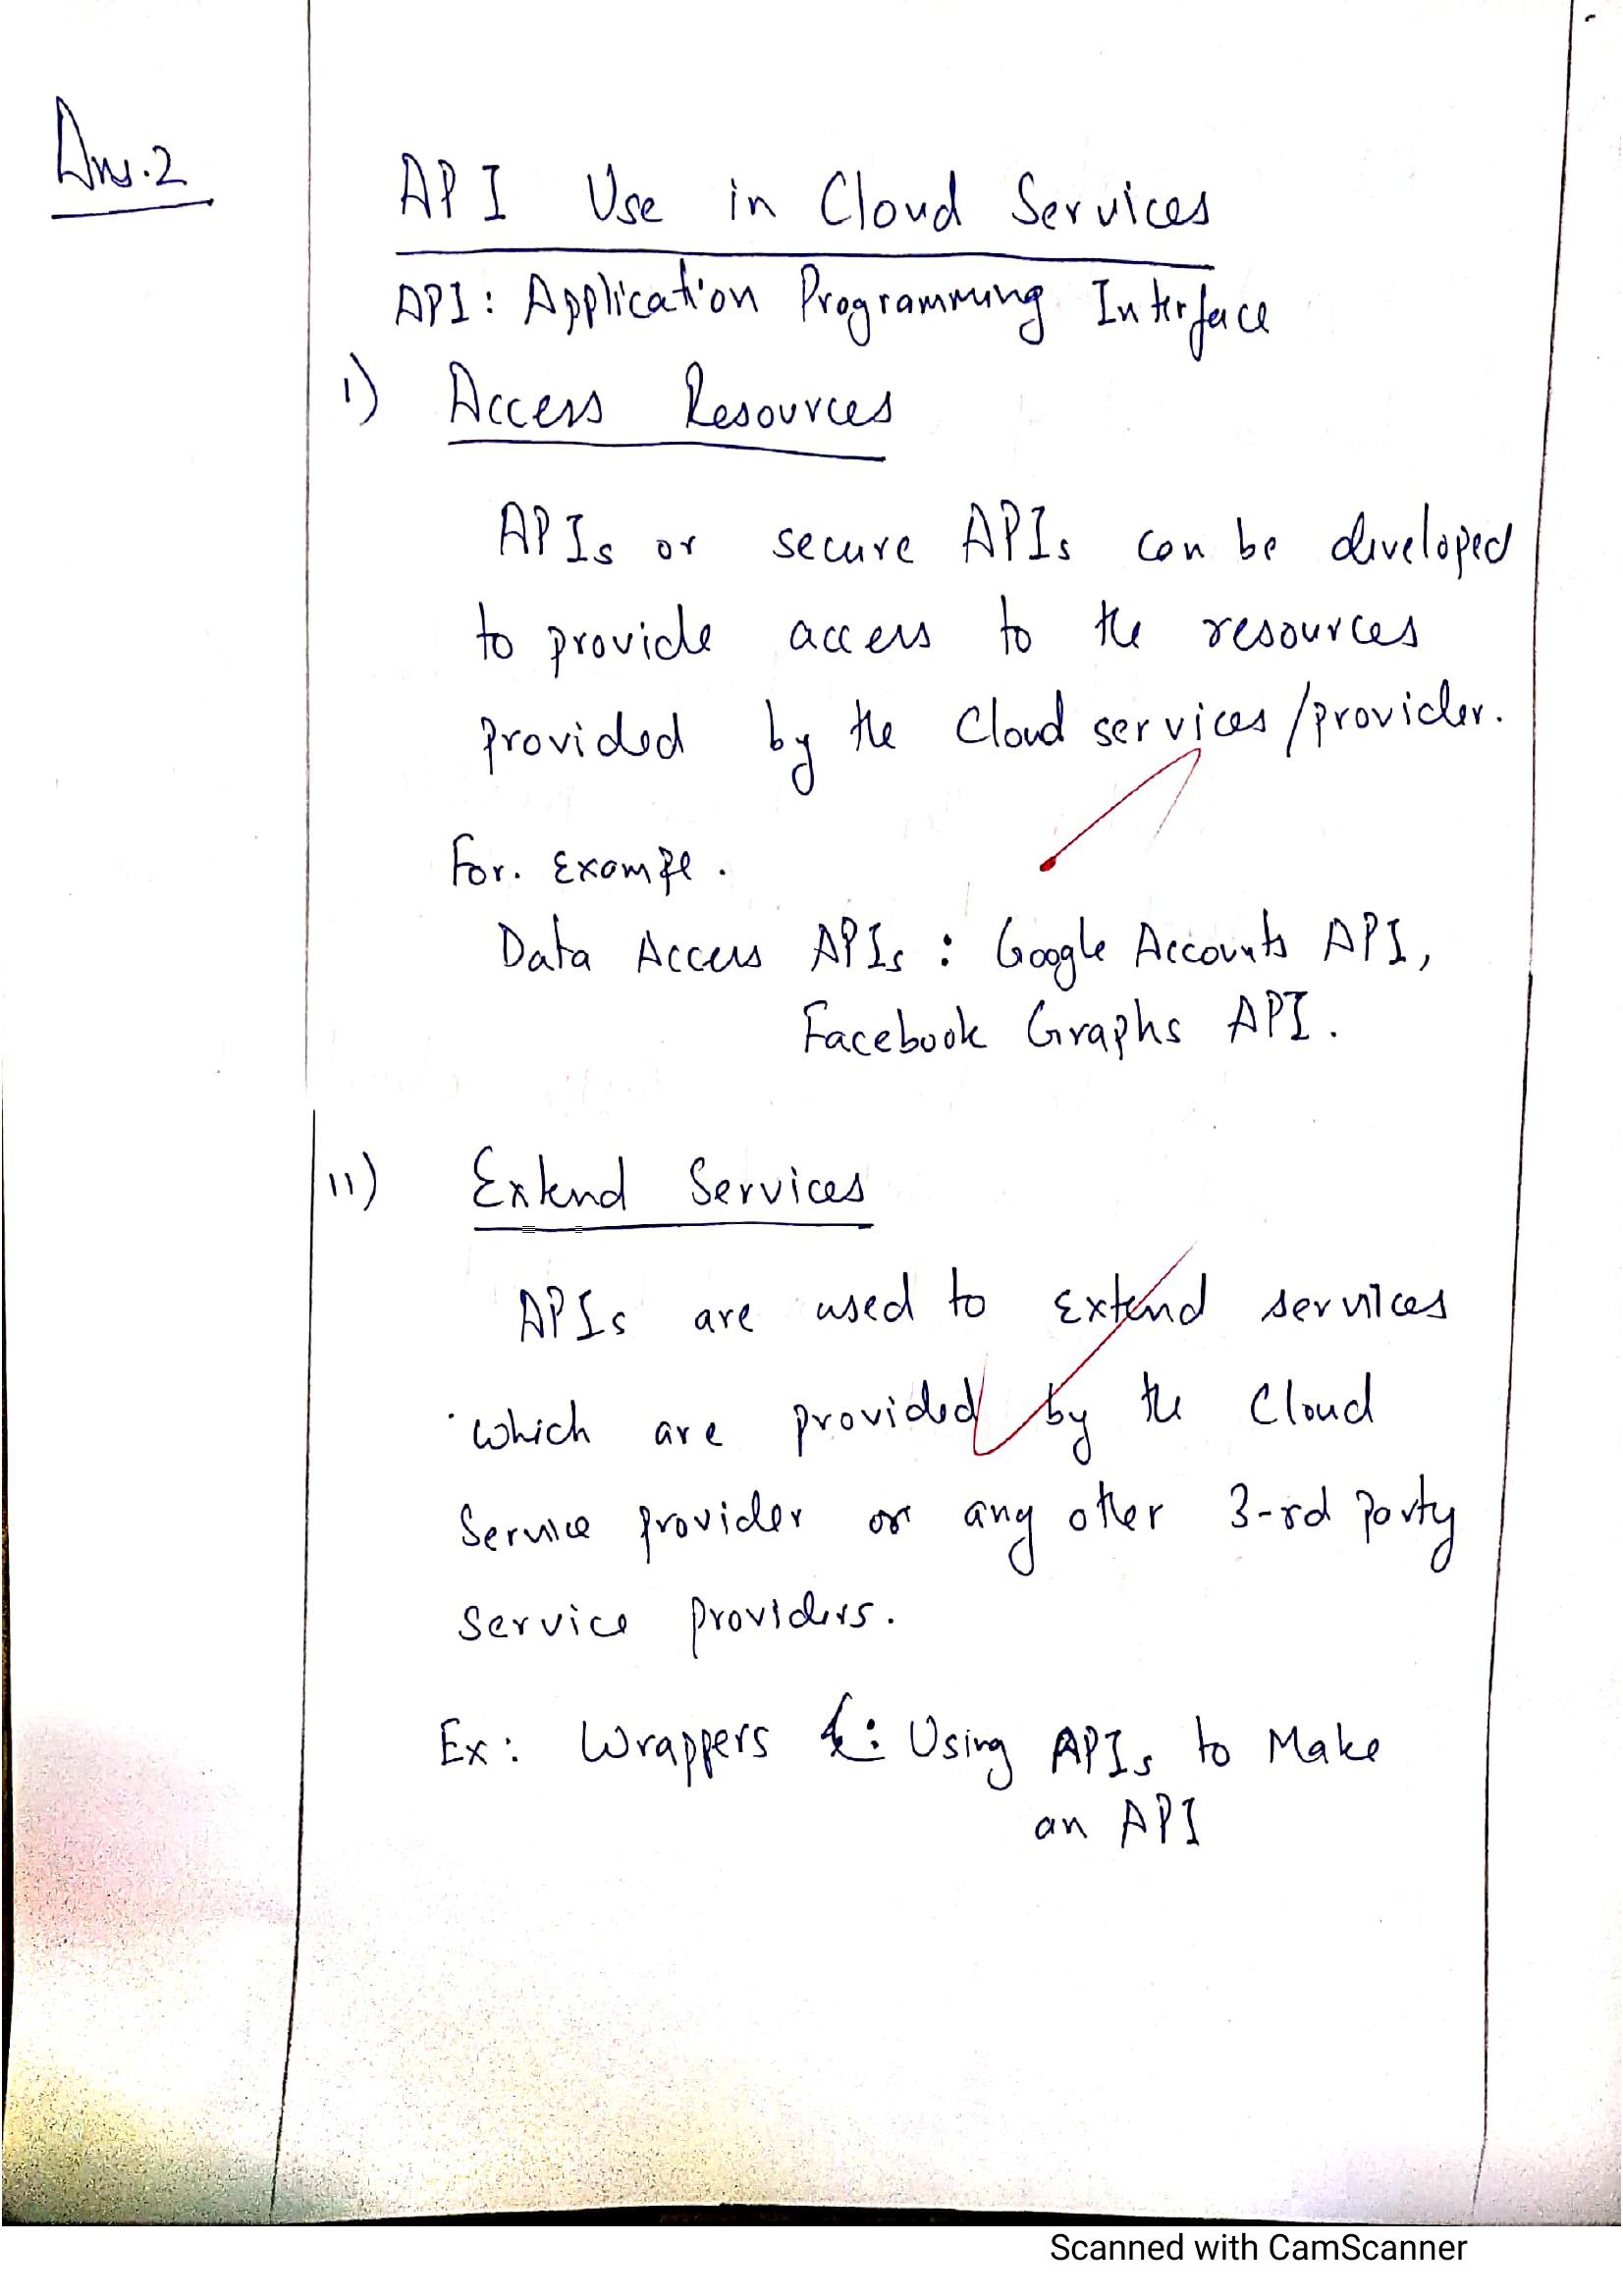 Ans.2
API Use in Cloud Services
API: Application Programming Interface
i) Access Resources
APIs or secure APIs can be developed
to provide access to the resources
provided by the Cloud services/provider.
For. Exampe.
Data Access APIs : Google Accounts API,
Facebook Graphs API.
ii) Extend Services
APIs are used to Extend services
which are provided by the Cloud
Service provider or any other 3-rd party
Service Providers.
Ex: Wrappers : Using APIs to Make
an API
Scanned with CamScanner